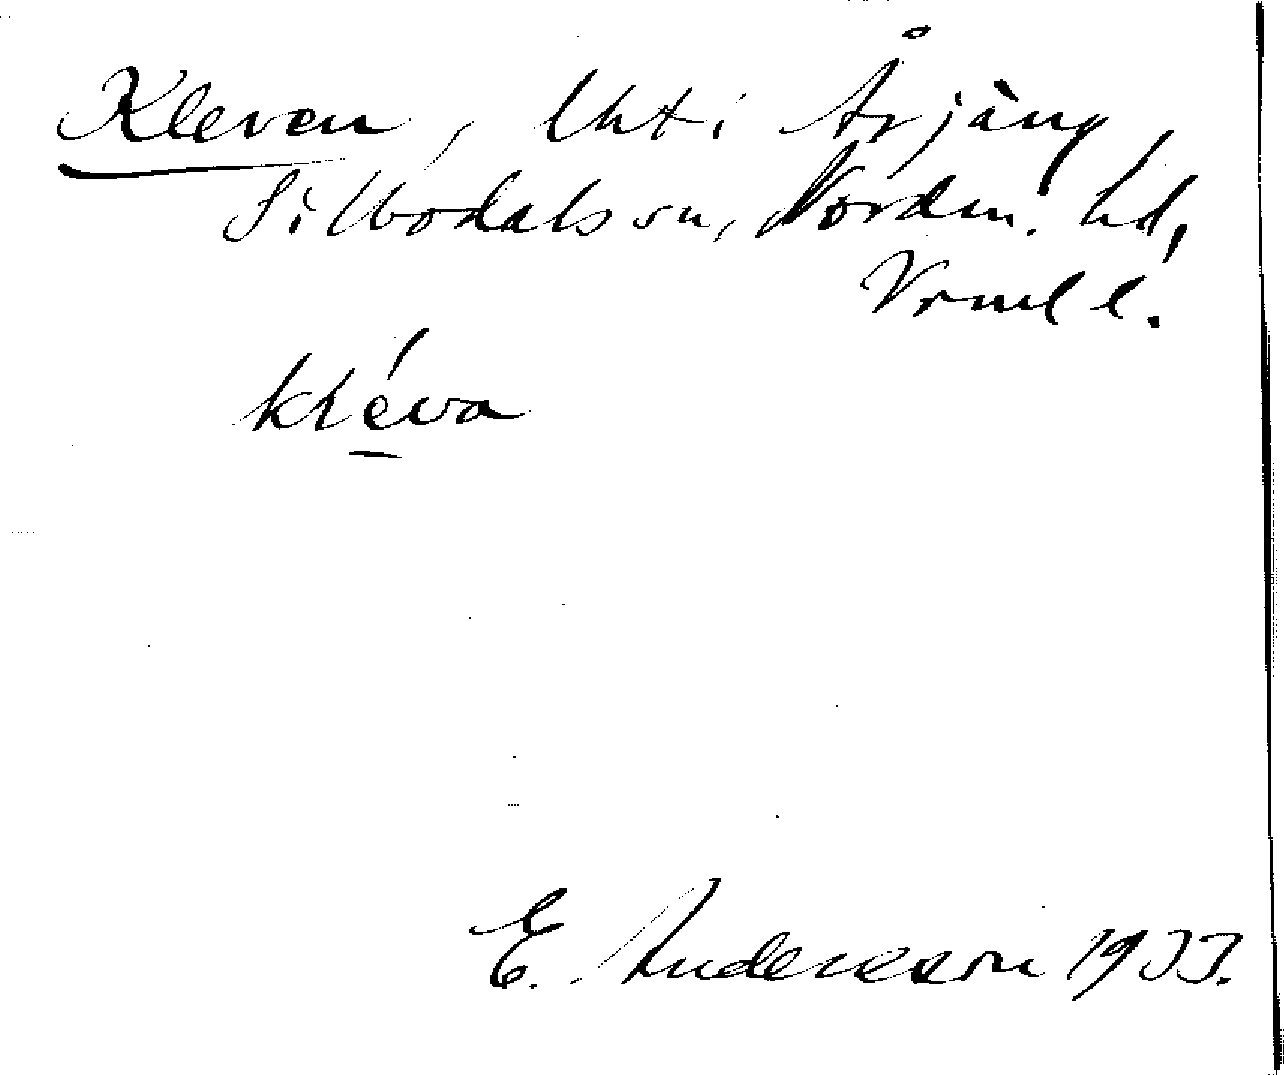 Kleven, lht i Årjäng,
Silbodals sn, Nordm. hd,
Vrml l.
kléva
E. Andersson 1933.